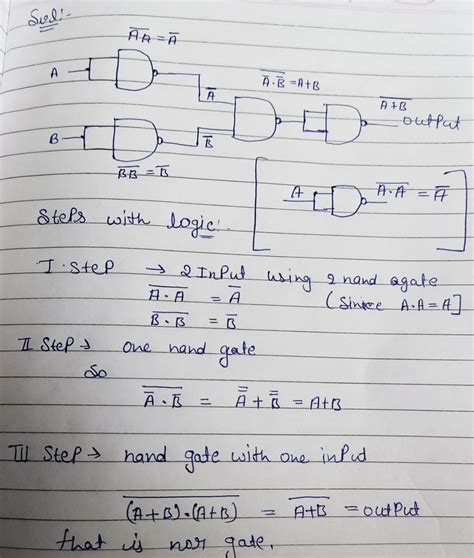 Sol:-
A̅A̅ = A̅
A
A̅
\overline{A̅.B̅} = A+B
\overline{A+B}
output
B
B̅
\overline{BB} = B̅
A
\overline{A.A} = A̅
Steps with logic:
I. Step → 2 Input using 2 nand agate
\overline{A.A} = A̅ (Since A.A = A]
\overline{B.B} = B̅
II Step → one nand gate
So
\overline{A̅.B̅} = \overline{A̅} + \overline{B̅} = A+B
III Step → nand gate with one input
\overline{(A+B).(A+B)} = \overline{A+B} = output
that is nor gate.